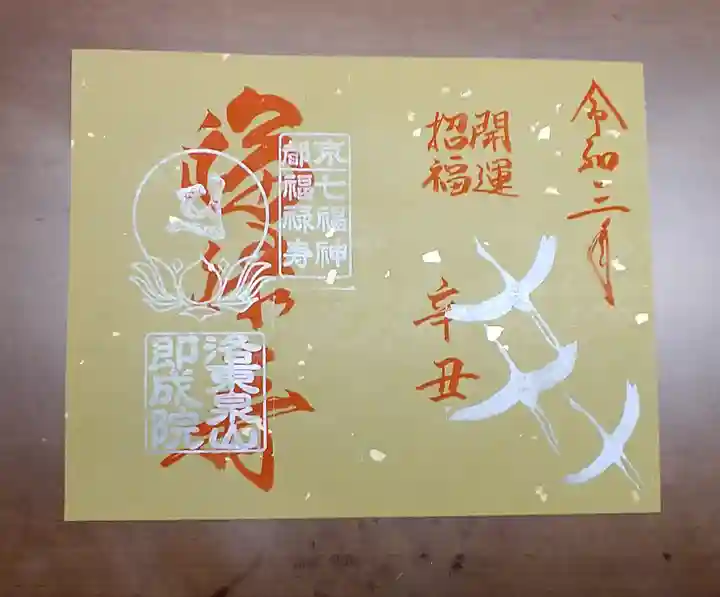 令和三年
開運
招福
辛丑
福禄寿
京七福神
都福禄寿
洛東泉山
即成院